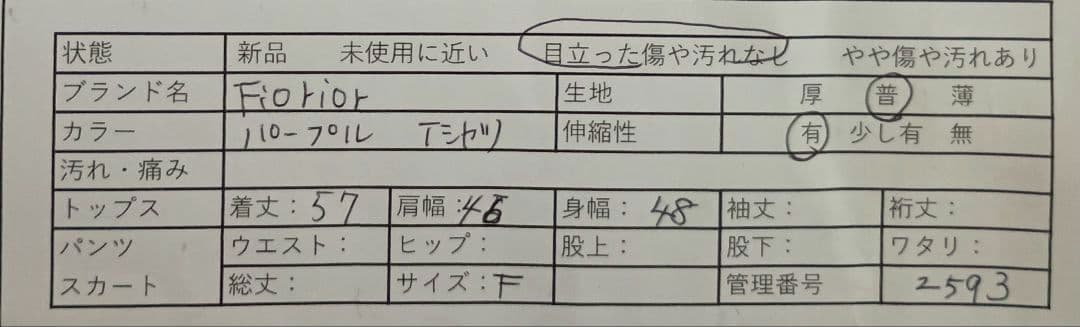 状態 新品 未使用に近い 目立った傷や汚れなし やや傷や汚れあり
ブランド名 Fiorior 生地 厚 普 薄
カラー パープル Tシャツ 伸縮性 有 少し有 無
汚れ・痛み
トップス 着丈：57 肩幅： 身幅：48 袖丈： 裄丈：
パンツ ウエスト： ヒップ： 股上： 股下： ワタリ：
スカート 総丈： サイズ：F 管理番号 2593